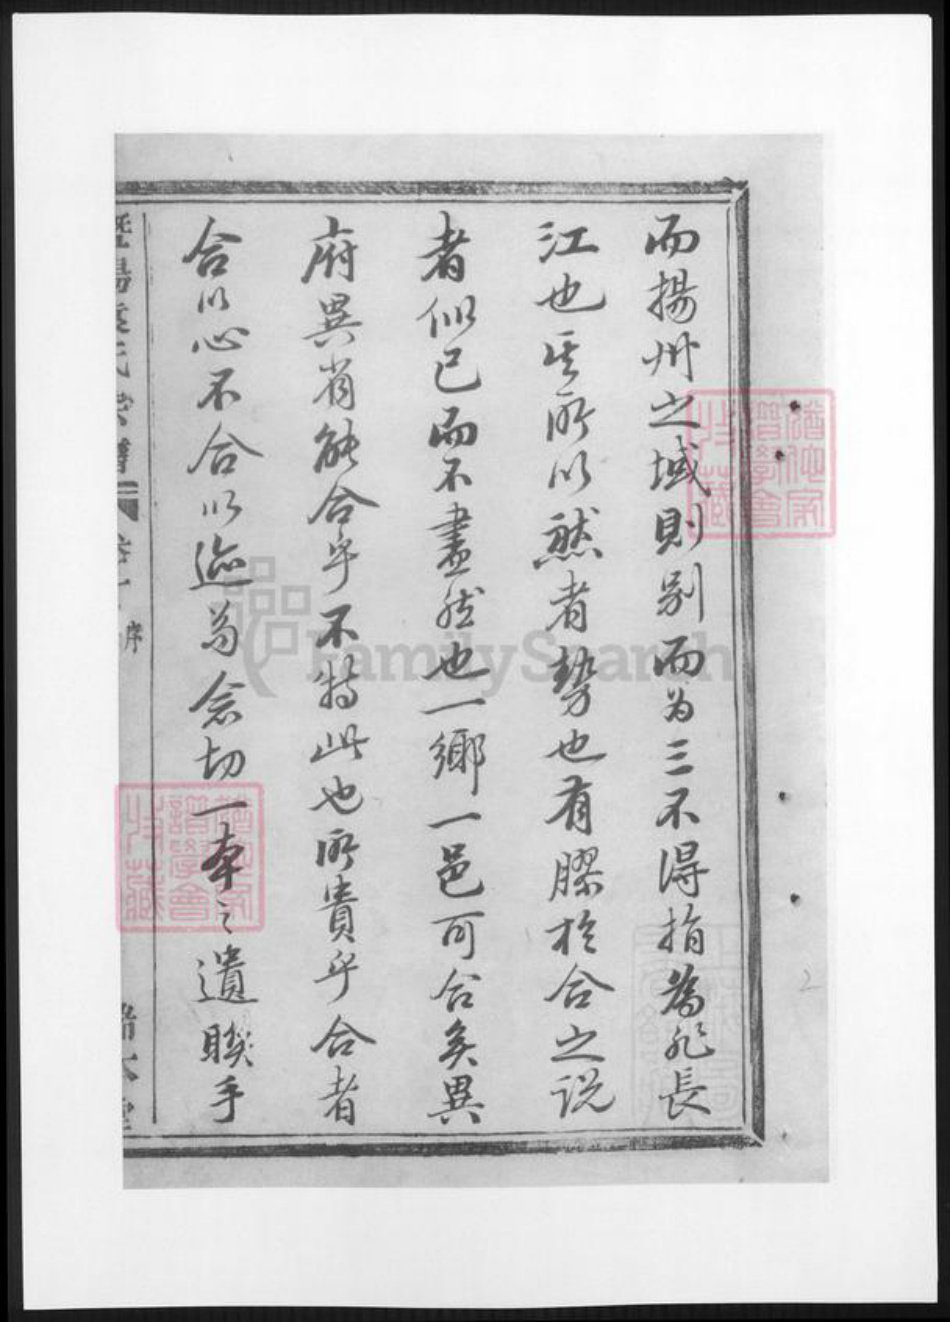 而揚州之域則别而为三不得指為非長
江也其所以然者勢也有膠於合之説
者似已而不盡然也一鄉一邑可合矣異
府異省能合乎不特此也所貴乎合者
合以心不合以迹苟念切一本之遺聯手
序
FamilySearch
2